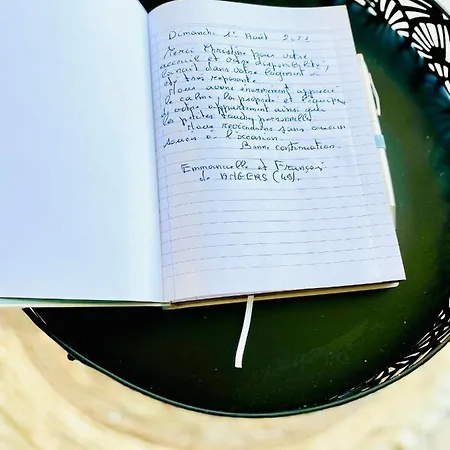 Dimanche 1er Août 2021
Merci Christine pour votre
accueil et votre disponibilité,
la nuit dans votre logement a
été très reposant.
Nous avons énormément apprécié
le calme, la propreté et l'équipe
de votre appartement ainsi que
les petites touches personnelles.
Nous reviendrons sans aucun
soucis à l'occasion.
Bonne continuation.
Emmanuelle et François
de ANGERS (49).